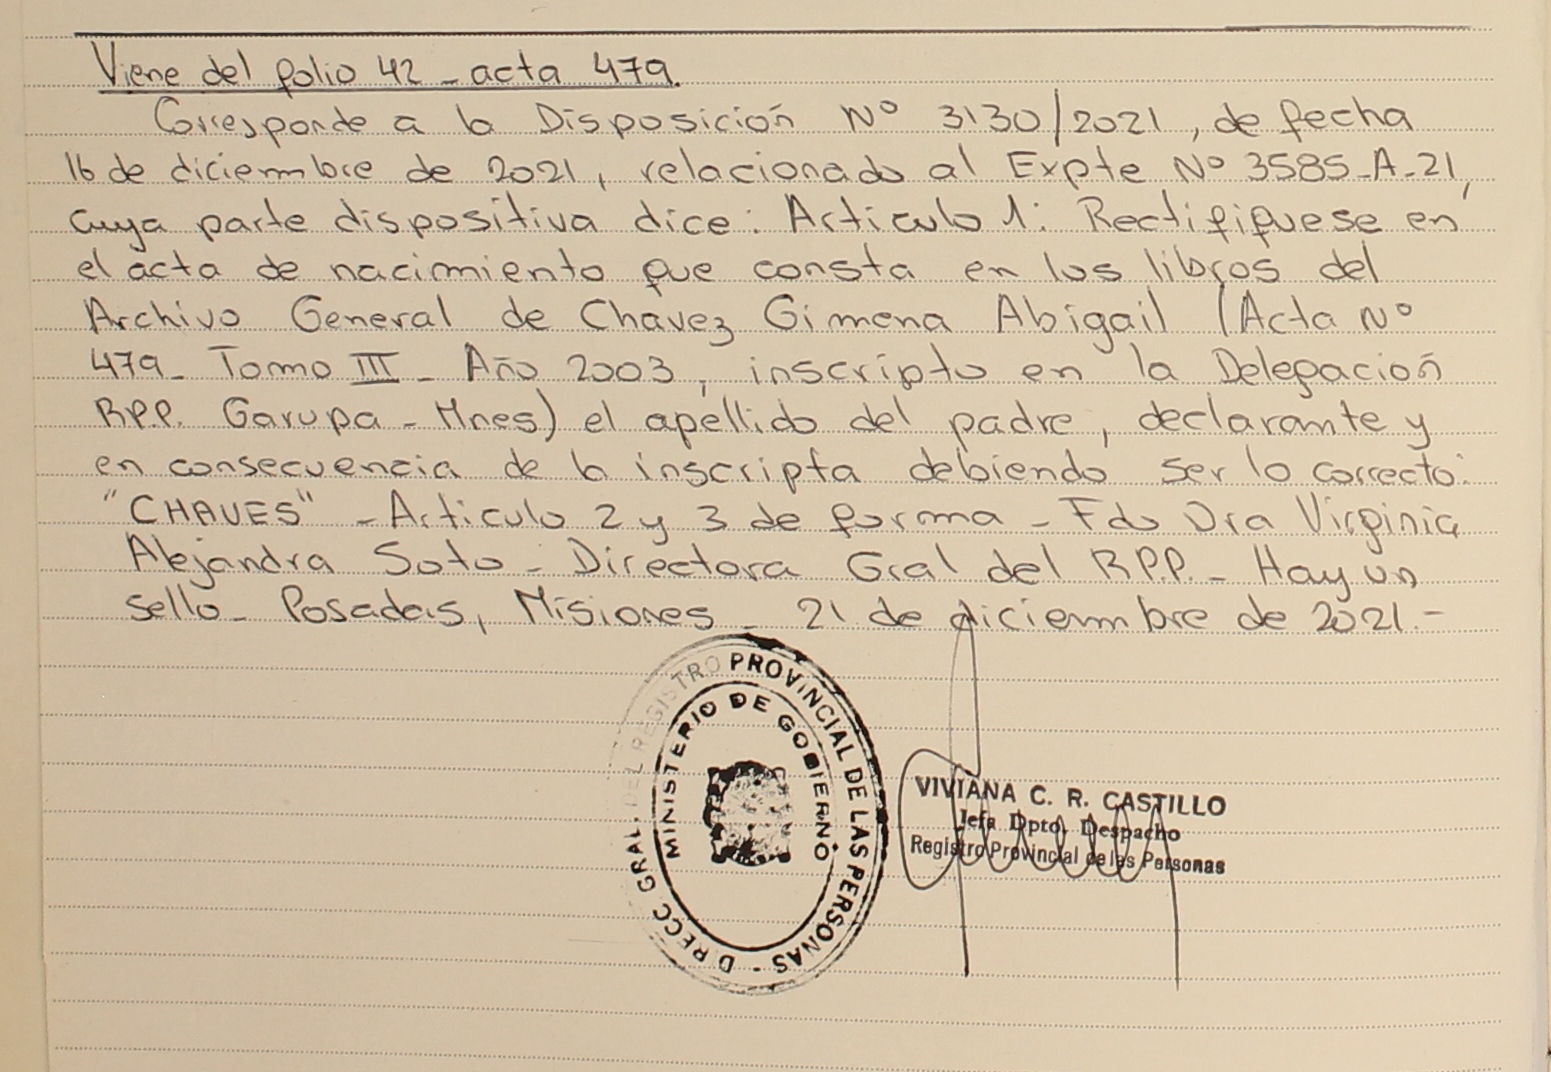 Viene del folio 42 - acta 479.
Corresponde a la Disposición Nº 3130/2021, de fecha
16 de diciembre de 2021, relacionado al Expte Nº 3585-A-21,
cuya parte dispositiva dice: Articulo 1: Rectifiquese en
el acta de nacimiento que consta en los libros del
Archivo General de Chavez Gimena Abigail (Acta Nº
479- Tomo III - Año 2003, inscripto en la Delegación
RPP. Garupa - Mnes) el apellido del padre, declarante y
en consecuencia de la inscripta debiendo ser lo correcto:
"CHAVES" - Articulo 2 y 3 de forma - Fdo Dra Virginia
Alejandra Soto - Directora Gral del R.P.P. - Hay un
sello - Posadas, Misiones - 21 de diciembre de 2021.-
DIRECC. GRAL. DEL REGISTRO PROVINCIAL DE LAS PERSONAS -
MINISTERIO DE GOBIERNO
VIVIANA C. R. CASTILLO
Jefa Dpto. Despacho
Registro Provincial de las Personas